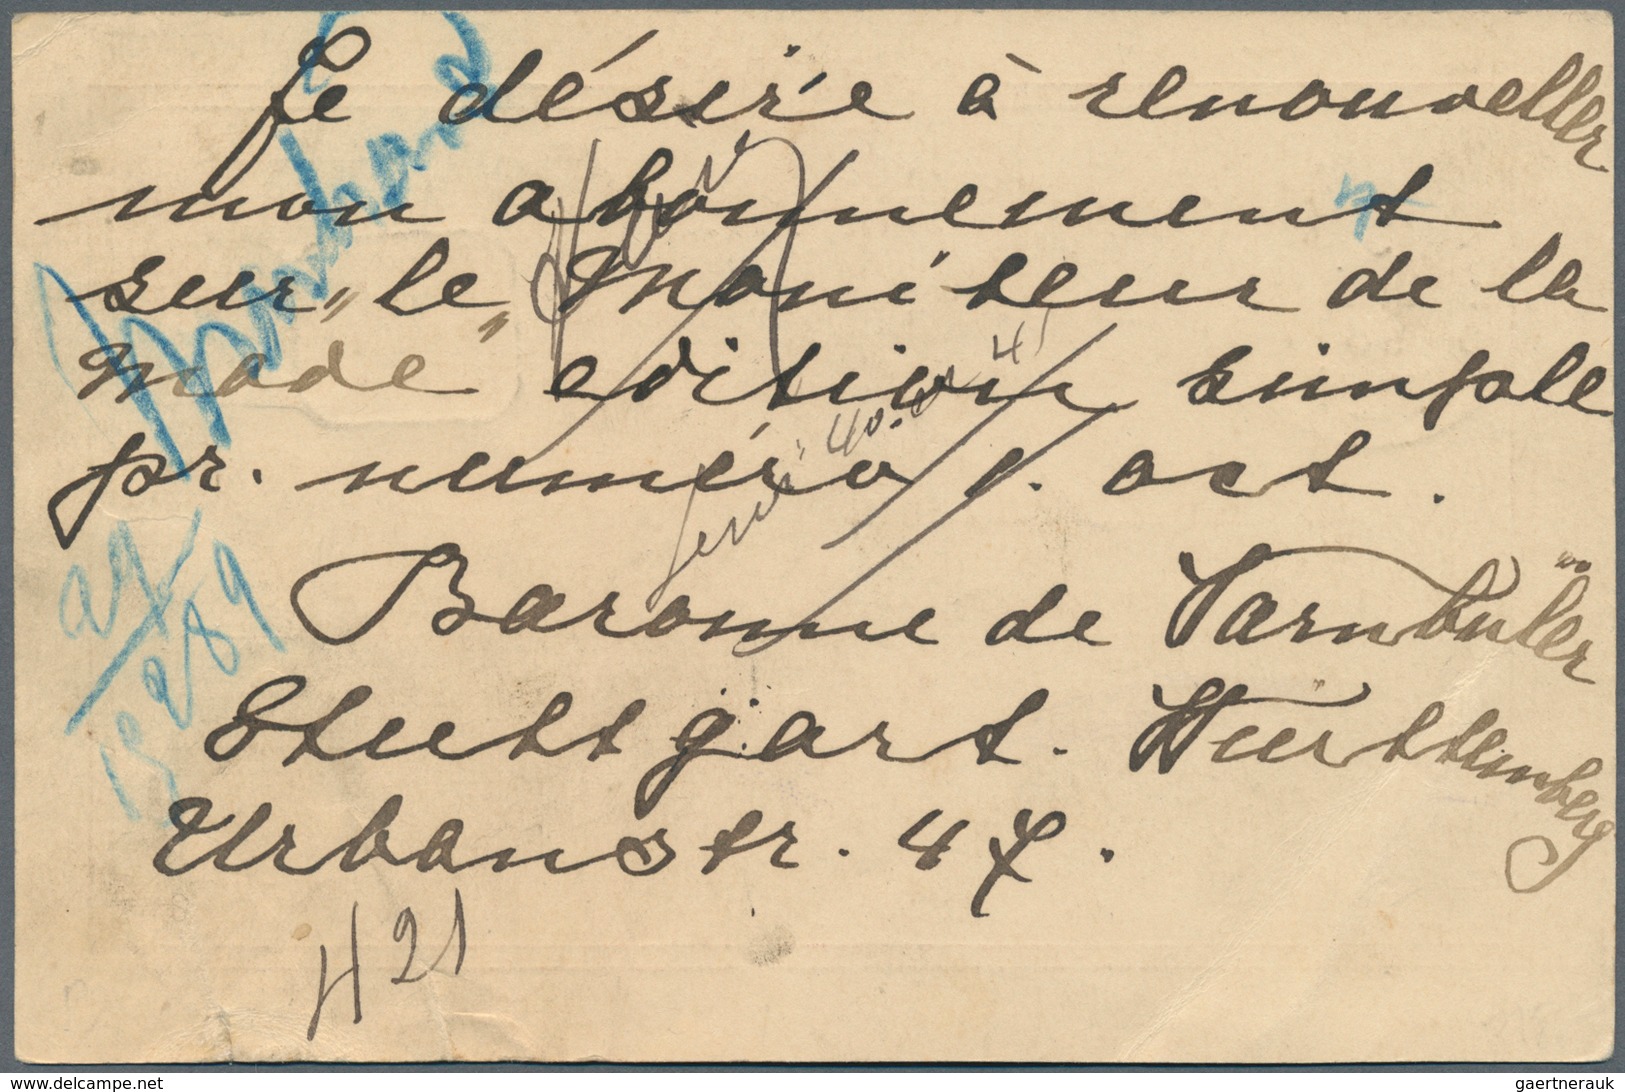 Je désire à renouveller
mon abonnement
sur „le „Moniteur de la
Mode" edition simple
pr. numéro 1. oct.
Baronne de Varnbüler
Stuttgart. Württemberg
Urbanstr. 47.
H 21
delcampe.net
gaertnerauk